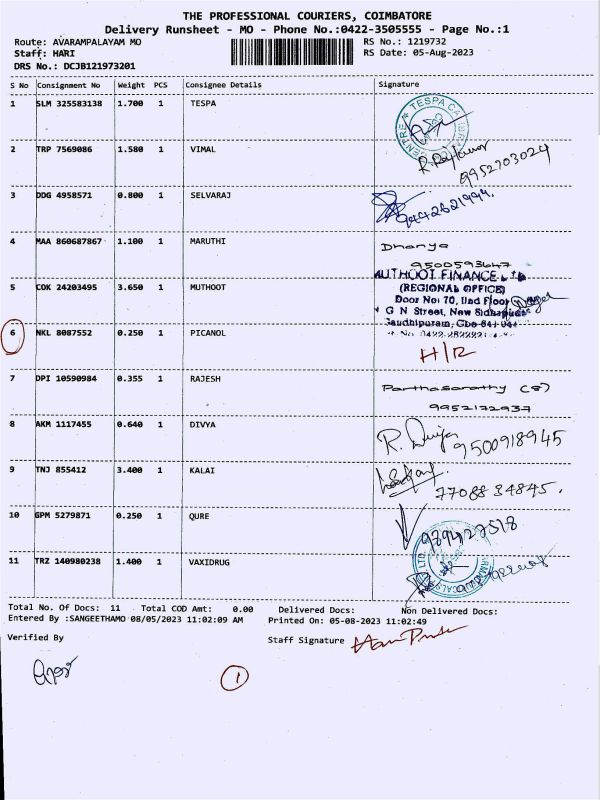 THE PROFESSIONAL COURIERS, COIMBATORE
Delivery Runsheet - MO - Phone No.:0422-3505555 - Page No.:1
Route: AVARAMPALAYAM MO
RS No.: 1219732
Staff: HARI
RS Date: 05-Aug-2023
DRS No.: DCJB121973201
S No Consignment No Weight PCS Consignee Details Signature
1 SLM 325583138 1.700 1 TESPA
2 TRP 7569086 1.580 1 VIMAL
9952703024
3 DDG 4958571 0.800 1 SELVARAJ
9442621999.
4 MAA 860687867 1.100 1 MARUTHI Dhanya
9500593647
5 COK 24203495 3.650 1 MUTHOOT
MUTHOOT FINANCE LTD
(REGIONAL OFFICE)
Door No: 70, IInd Floor
G N Street, New Sidhapudur
Gandhipuram, Cbe
6 NKL 8087552 0.250 1 PICANOL H/R
7 DPI 10590984 0.355 1 RAJESH Parthasarathy (S)
9952172937
8 AKM 1117455 0.640 1 DIVYA R. Divya
9500918945
9 TNJ 855412 3.400 1 KALAI
7708834845.
10 GPM 5279871 0.250 1 QURE
11 TRZ 140980238 1.400 1 VAXIDRUG
Total No. Of Docs: 11 Total COD Amt: 0.00 Delivered Docs: Non Delivered Docs:
Entered By :SANGEETHAMO 08/05/2023 11:02:09 AM Printed On: 05-08-2023 11:02:49
Verified By
Staff Signature
1